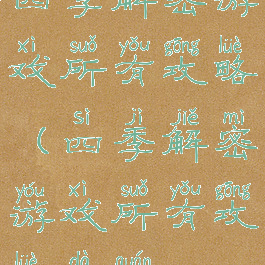 四季解密游
xì suǒ yǒu gōng lüè
戏所有攻略
sì jì jiě mì
（四季解密
yóu xì suǒ yǒu gōng
游戏所有攻
lüè dà quán